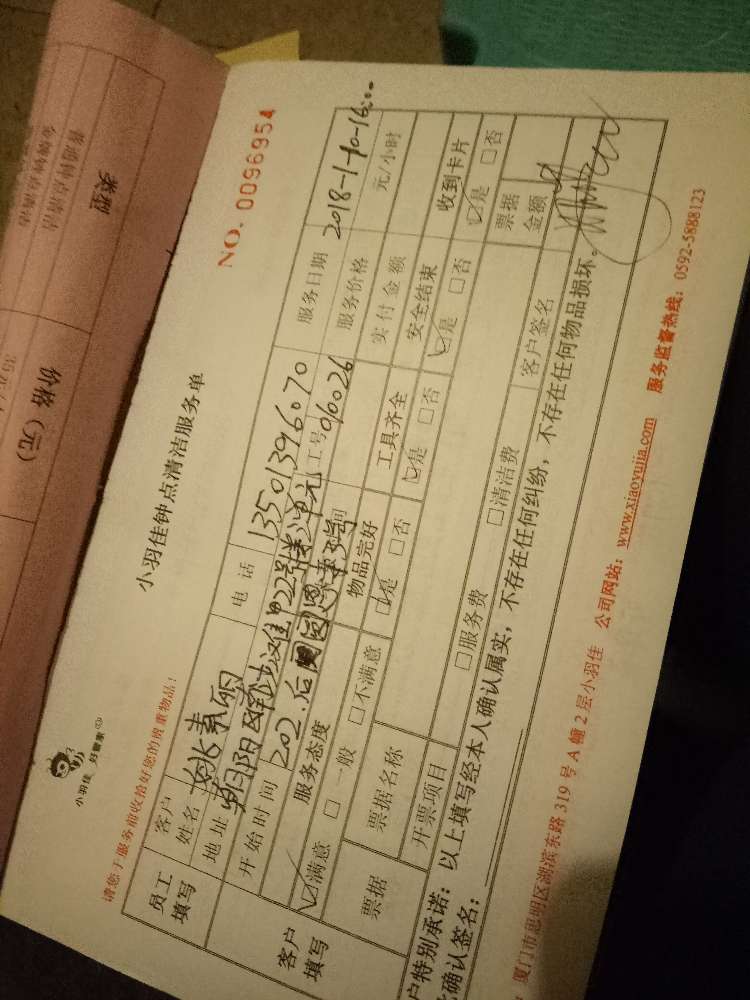 小羽佳 好管家
小羽佳钟点清洁服务单
NO. 0096954
请您于服务前收拾好您的贵重物品！
员工填写
客户姓名 姚素丽 电话 13501396070 服务日期 2018-1-10-16:00
地址 朝阳区 22号楼 单元 工号 010026 服务价格 元/小时
开始时间 202 实付金额
客户填写
服务态度 物品完好 工具齐全 安全结束 收到卡片
☑满意 □一般 □不满意 ☑是 □否 ☑是 □否 ☑是 □否 ☑是 □否
票据 票据名称 票据金额
开票项目 □服务费 □清洁费 客户签名
户特别承诺：以上填写经本人确认属实，不存在任何纠纷，不存在任何物品损坏。
确认签名：
厦门市思明区湖滨东路 319 号 A 幢 2 层小羽佳 公司网站：www.xiaoyujia.com 服务监督热线：0592-5888123
类型
价格（元）
普通钟点清洁